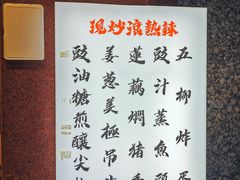 现炒浪熱辣
五柳炸蛋
豉汁蒸魚頭
蓮藕燜豬
姜蔥美極吊
豉油糖煎釀尖